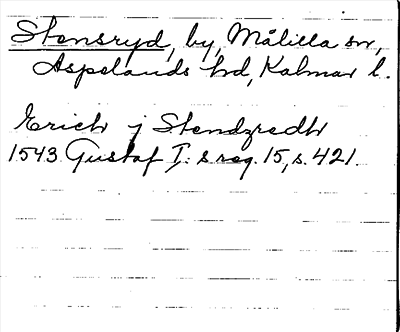 Stensryd, by, Målilla sn,
Aspelands hd, Kalmar l.
Erich j Stendzredh
1543 Gustaf I:s reg. 15, s. 421.